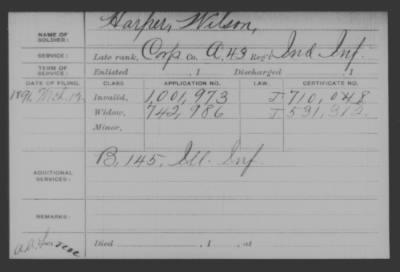 NAME OF SOLDIER: Harper, Wilson,
SERVICE: Late rank, Corp Co. A, 43 Reg't Ind Inf.
TERM OF SERVICE: Enlisted , 1 Discharged , 1
DATE OF FILING. CLASS. APPLICATION NO. LAW. CERTIFICATE NO.
1891 Invalid, 1,001,973 J 710,048
Widow, 742,986 J 531,312
Minor,
ADDITIONAL SERVICES: B, 145, Ill. Inf
REMARKS:
Died , 1 , at